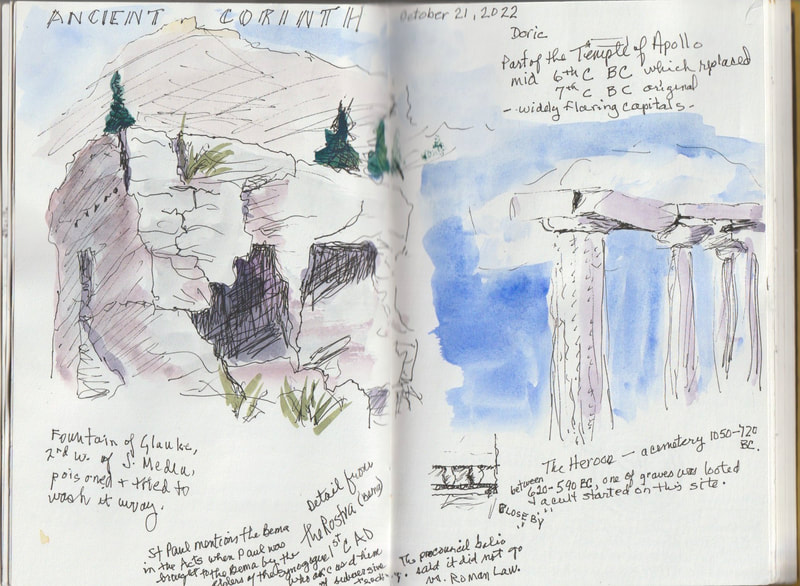 ANCIENT CORINTH
October 21, 2022
Doric
Part of the Temple of Apollo
mid 6th C BC which replaced
7th C BC original
- widely flaring capitals -
Fountain of Glauke,
2nd w. of J. Medea,
poisoned + tried to
wash it away.
The Heroon - a cemetery 1050-720
BC.
between
620-590 BC, one of graves was looted
a cult started on this site.
CLOSE BY
Detail from
the Rostra (bema)
1st C AD
St Paul mentions the Bema
in the Acts when Paul was
brought to the Bema by the
of the Synagogue
who accused him
of subversive
teaching.
The
said it did not go
vs. Roman Law.